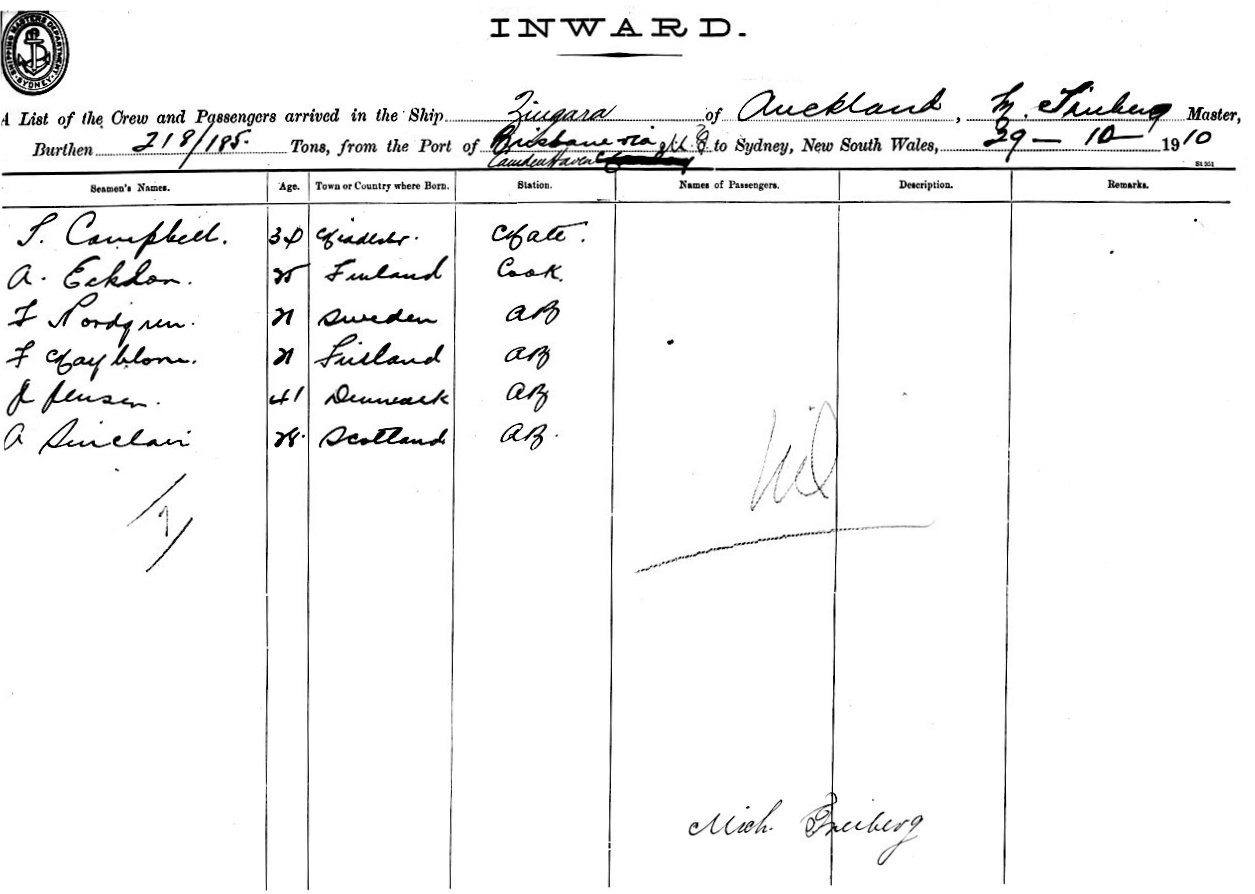 SHIPPING MASTERS DEPARTMENT SYDNEY
INWARD.
A List of the Crew and Passengers arrived in the Ship Zingara of Auckland, M. Master,
Burthen 218/185. Tons, from the Port of Brisbane via to Sydney, New South Wales, 29 — 10 — 1910
Camden Haven
St 351
Seamen's Names. Age. Town or Country where Born. Station. Names of Passengers. Description. Remarks.
Campbell. 30 Mate.
A. 25 Finland Cook.
F Nordgren. 21 Sweden AB
F Mayblom. 21 Finland AB
J Jensen. 41 Denmark AB
A Sinclair 28. Scotland AB.
Nil
/7/
Mich. Freiberg